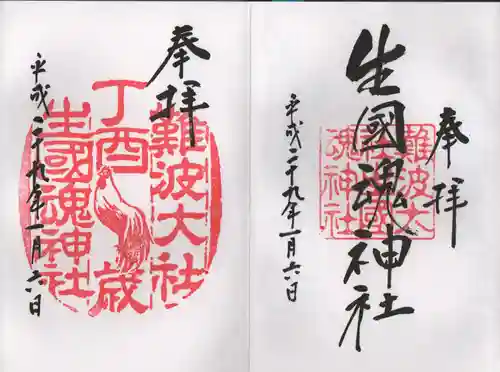 奉拝
生國魂神社
難波大社
生國魂神社
平成二十九年一月六日
奉拝
難波大社
丁酉歳
生國魂神社
平成二十九年一月六日